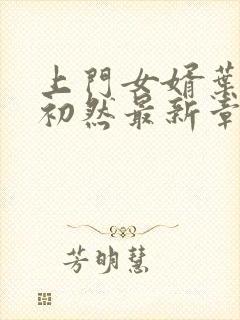 上門女婿葉
初然最新章
芳明慧